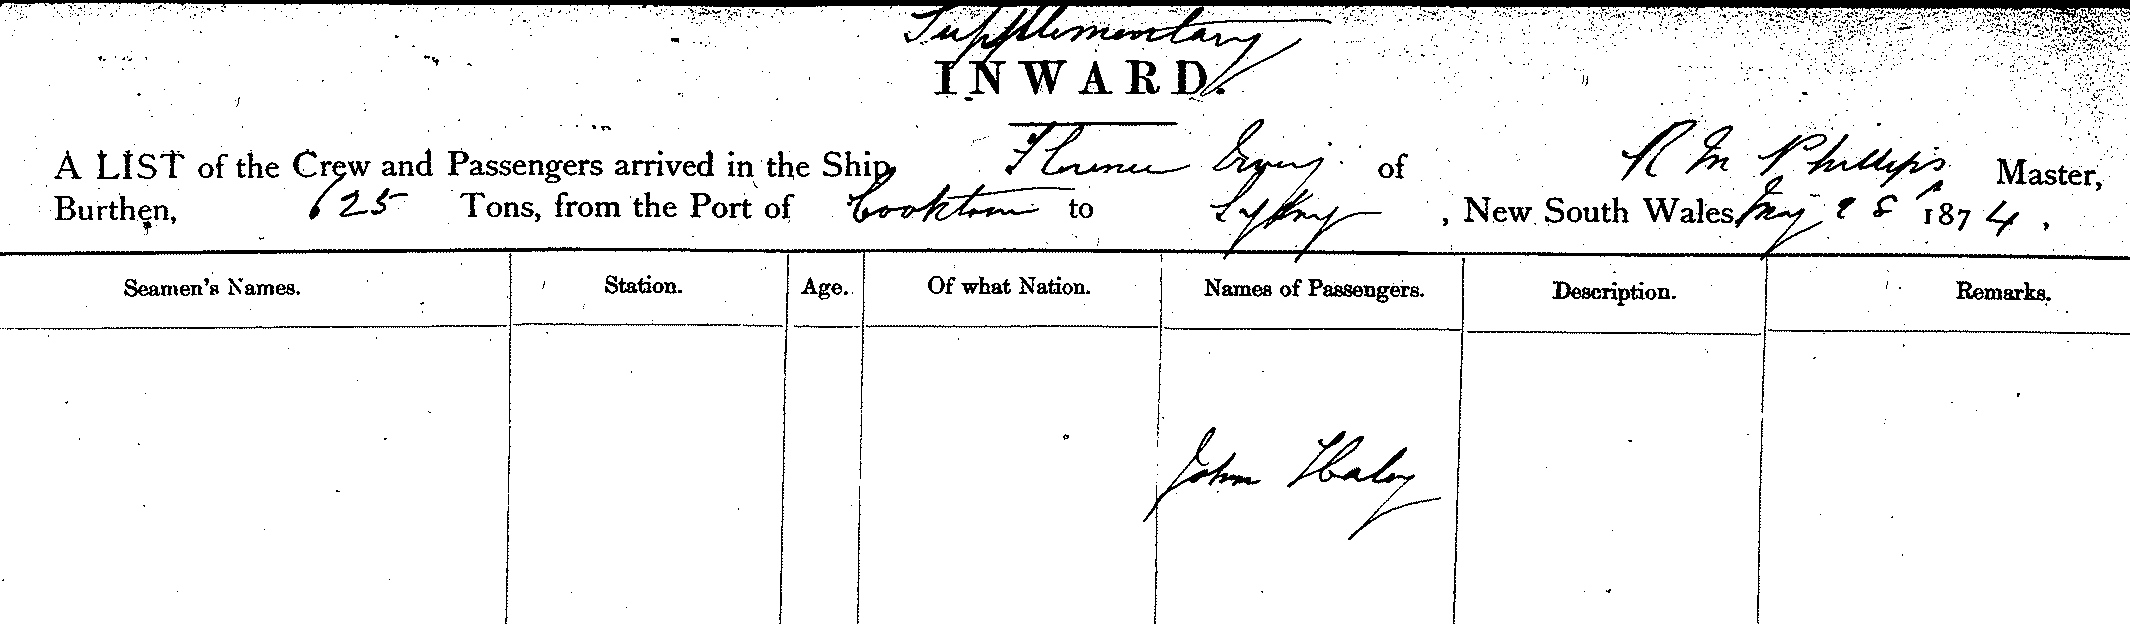 Supplementary
INWARD.
A LIST of the Crew and Passengers arrived in the Ship Florence Irving of R M Phillips Master,
Burthen, 625 Tons, from the Port of Cooktown to Sydney, New South Wales May 28 1874.
Seamen's Names. Station. Age. Of what Nation. Names of Passengers. Description. Remarks.
John Haley